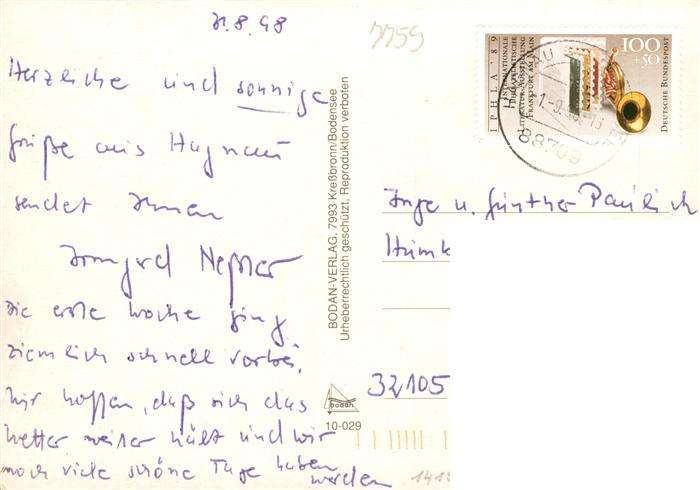 31.8.98
7759
Herzliche und sonnige
Grüße aus Hagnau
sendet Ihnen
Irmgard Neßler
Die erste Woche ging
ziemlich schnell vorbei.
Wir hoffen, daß sich das
Wetter weiter hält und wir
noch viele schöne Tage haben
werden
BODAN-VERLAG, 7993 Kreßbronn/Bodensee
Urheberrechtlich geschützt, Reproduktion verboten
bodan
10-029
IPHLA '89
INTERNATIONALE
PHILATELISTISCHE
LITERATUR-AUSSTELLUNG
FRANKFURT AM MAIN
100
+50
DEUTSCHE BUNDESPOST
88709
Inge u. Günther
32105